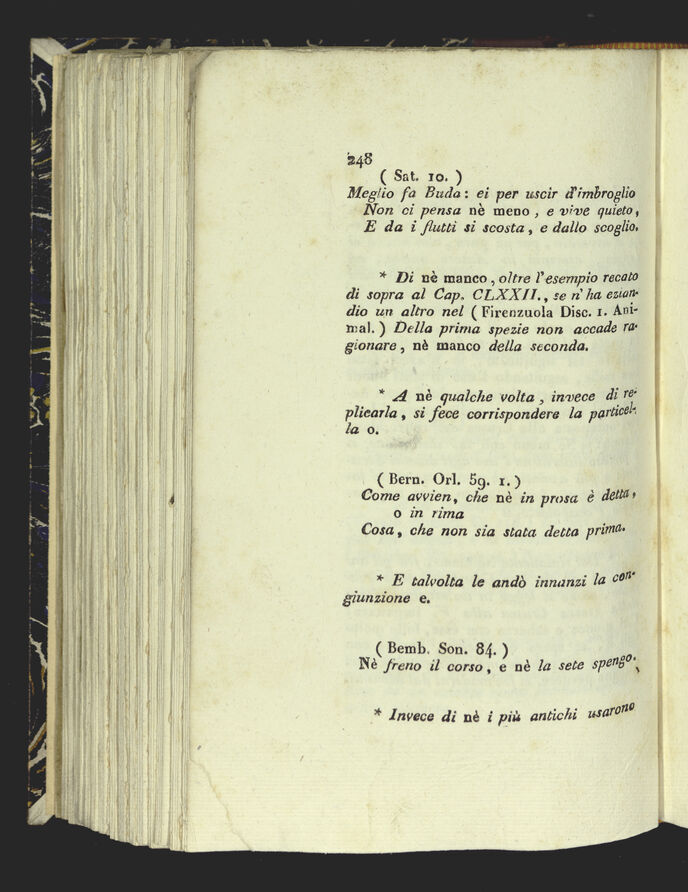 248
( Sat. 10. )
Meglio fa Buda : ei per uscir d'imbroglio
Non ci pensa nè meno , e vive quieto ,
E da i flutti si scosta , e dallo scoglio.
* Di nè manco , oltre l'esempio recato
di sopra al Cap. CLXXII. , se n'ha ezian-
dio un altro nel ( Firenzuola Disc. 1. Ani-
mal. ) Della prima spezie non accade ra-
gionare , nè manco della seconda.
* A nè qualche volta , invece di re-
plicarla , si fece corrispondere la particel-
la o.
( Bern. Orl. 59. 1. )
Come avvien , che nè in prosa è detta ,
o in rima
Cosa , che non sia stata detta prima.
* E talvolta le andò innanzi la con-
giunzione e.
( Bemb. Son. 84. )
Nè freno il corso , e nè la sete spengo.
* Invece di nè i più antichi usarono